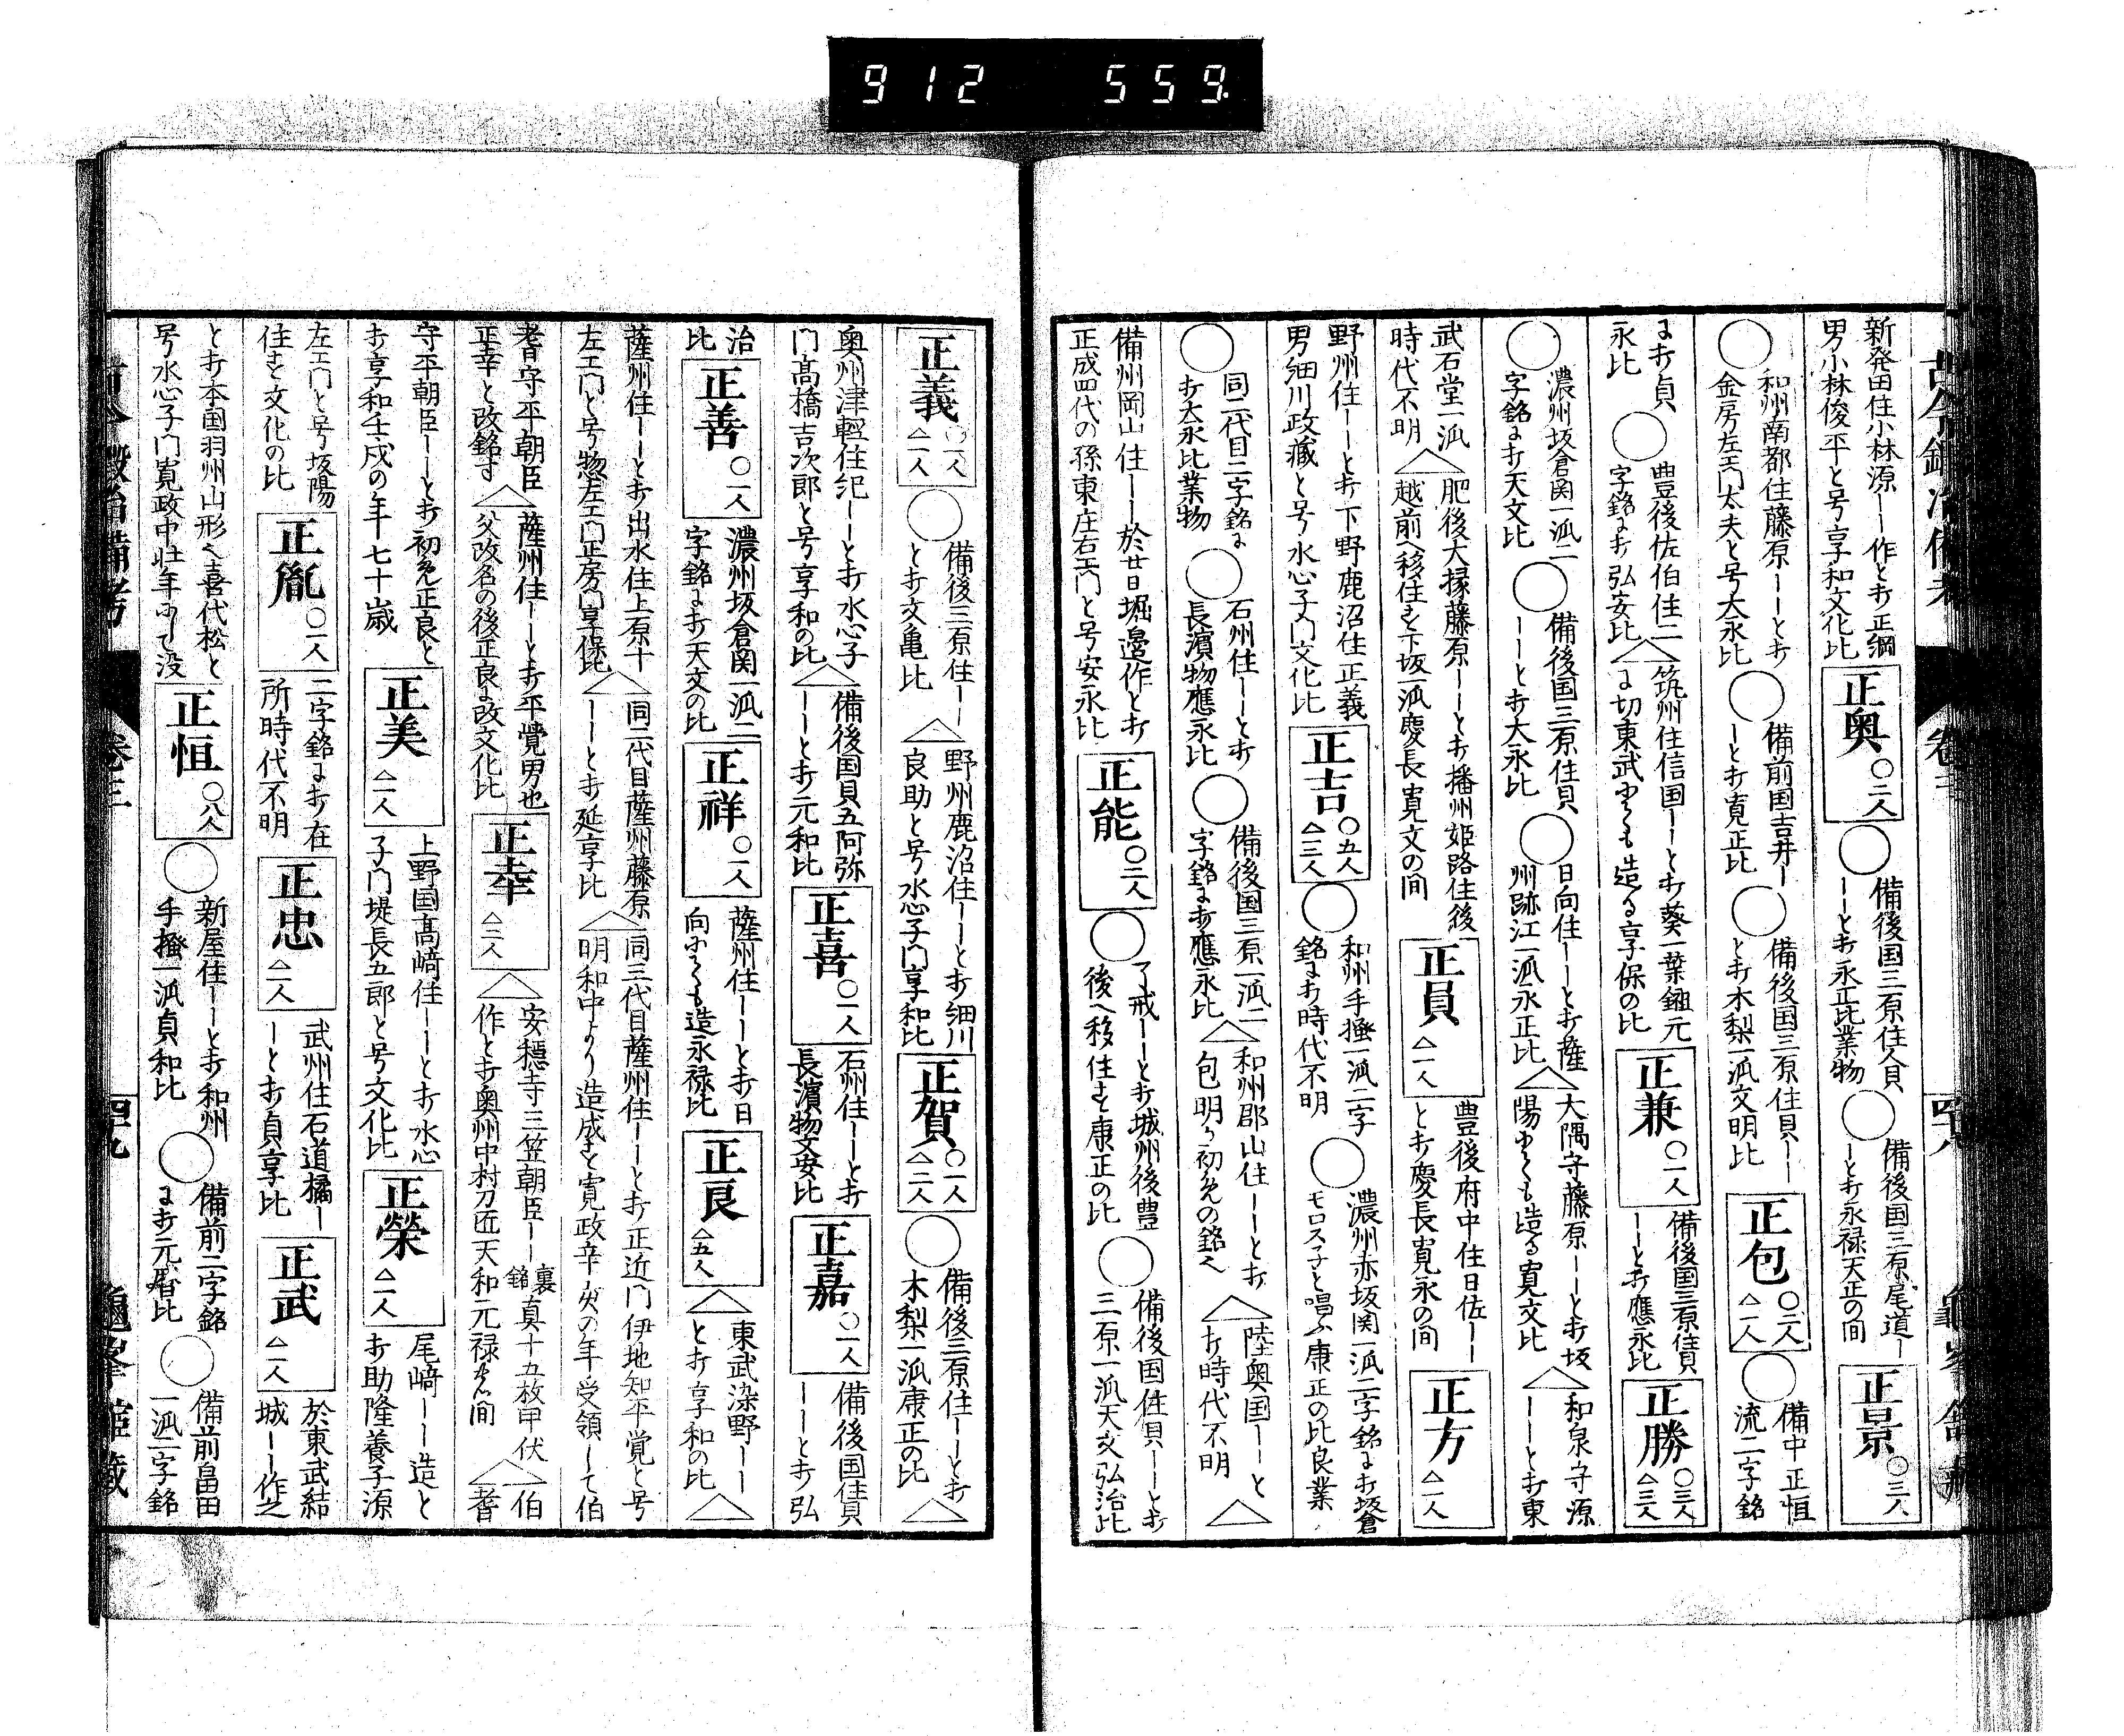 912 559
古今鍛冶備考 巻三 四十八 龜峯館藏
新発田住小林源ーー作とオ正綱
男小林俊平と号享和文化比
正奥 〇二人
◯備後国三原住貝
ーーとオ永正比業物
◯備後国三原尾道ー
ーとオ永禄天正の間
正景 〇三人
◯和州南都住藤原ーーとオ
金房左エ門太夫と号大永比
◯備前国吉井ー
ーとオ寛正比
◯備後国三原住貝ーー
とオ木梨一派文明比
正包 〇二人 △一人
◯備中正恒
流二字銘
まオ貞
永比
◯豊後佐伯住二
字銘まオ弘安比
△筑州住信国ーーとオ葵一葉鎺元
ま切東武おゐても造る享保の比
正兼 〇一人
備後国三原住貝
ーーとオ應永比
正勝 〇三人 △三人
◯濃州坂倉関一派二
字銘まオ天文比
◯備後国三原住貝
ーーとオ大永比
◯日向住ーーとオ薩
州跡江一派永正比
△大隅守藤原ーーとオ坂
陽おゐても造る寛文比
△和泉守源
ーーとオ東
武石堂一派
時代不明
△肥後大掾藤原ーーとオ播州姫路住後
越前へ移住す下坂一派慶長寛文の間
正員 △一人
豊後府中住日佐ーー
とオ慶長寛永の間
正方 △一人
野州住ーーとオ下野鹿沼住正義
男細川政蔵と号水心子門文化比
正吉 〇五人 △三人
◯和州手掻一派二字
銘まオ時代不明
◯濃州赤坂関一派二字銘まオ坂倉
モロス子と唱ふ康正の比良業
◯同二代目二字銘ま
オ大永比業物
◯石州住ーーとオ
長濱物應永比
◯備後国三原一派二
字銘まオ應永比
△和州郡山住ーーとオ
包明か初めの銘へ
△陸奥国ーーと
オ時代不明
△
備州岡山住ーー於廿日堀邊作とオ
正成四代の孫東庄右エ門と号安永比
正能 〇二人
◯了戒ーーとオ城州後豊
後へ移住す康正の比
◯備後国住貝ーーとオ
三原一派天文弘治比
正義 〇一人 △一人
◯備後三原住ーー
とオ文亀比
△野州鹿沼住ーーとオ細川
良助と号水心子門享和比
正賀 〇一人 △二人
◯備後三原住ーーとオ
木梨一派康正の比
△
奥州津軽住紀ーーとオ水心子
門髙橋吉次郎と号享和の比
△備後国貝五阿弥
ーーとオ元和比
正喜 〇一人
石州住ーーとオ
長濱物文安比
正嘉 〇一人
備後国住貝
ーーとオ弘
治
比
正善 〇一人
濃州坂倉関一派二
字銘まオ天文の比
正祥 〇一人
薩州住ーーとオ日
向おゐても造永禄比
正良 △五人
△東武染野ーー
とオ享和の比
△
薩州住ーーとオ出水住上原十
左エ門と号惣左エ門正房門享保比
△同二代目薩州藤原
ーーとオ延享比
△同三代目薩州住ーーとオ正近門伊地知平覚と号
明和中より造成す寛政辛亥の年受領して伯
耆守平朝臣
正幸と改銘す
△薩州住ーーとオ平覚男也
父改名の後正良ま改文化比
正幸 △二人
△安穏寺三笠朝臣ーー裏銘真十五枚甲伏
作とオ奥州中村刀匠天和元禄の間
△伯
耆
守平朝臣ーーとオ初め正良と
オ享和壬戌の年七十歳
正美 △一人
上野国髙﨑住ーーとオ水心
子門堤長五郎と号文化比
正榮 △一人
尾﨑ーー造と
オ助隆養子源
左エ門と号坂陽
住す文化の比
正胤 〇一人
二字銘まオ在
所時代不明
正忠 △一人
武州住石道橘ー
ーとオ貞享比
正武 △一人
於東武結
城ーー作之
とオ本国羽州山形へ喜代松と
号水心子門寛政中壮年おゐて没
正恒 〇八人
◯新屋住ーーとオ和州
手掻一派貞和比
◯備前二字銘
まオ元暦比
◯備前畠田
一派二字銘
古今鍛冶備考 巻三 四十九 龜峯館藏